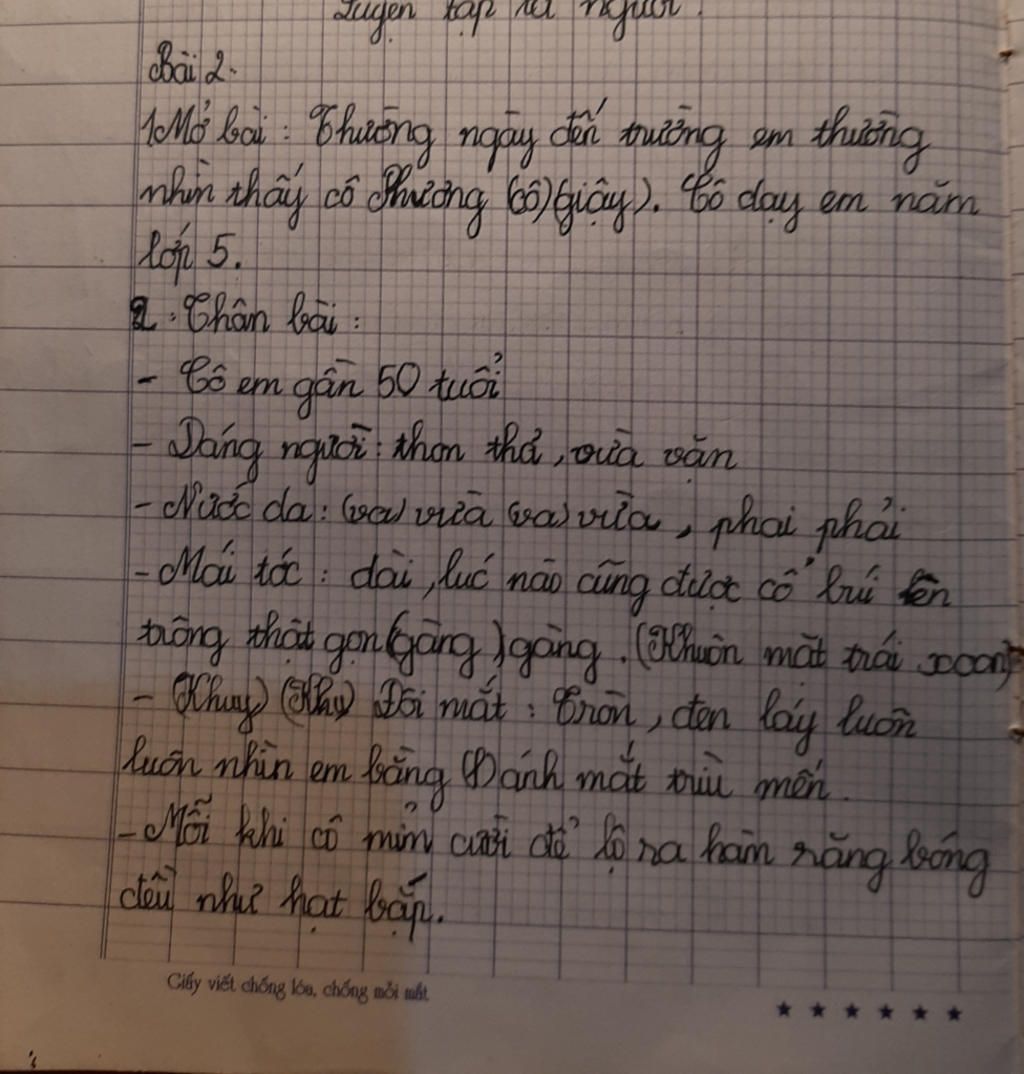 Luyện tập tả người.
Bài 2.
1. Mở bài: Thường ngày đến trường em thường
nhìn thấy cô Phương (cô) (giậy). Cô dạy em năm
lớp 5.
2. Thân bài:
- Cô em gần 50 tuổi
- Dáng người: thon thả, vừa vặn
- Nước da: (va) vừa (va) vừa, phai phải
- Mái tóc: dài, lúc nào cũng được cô búi lên
trông thật gọn (gàng) gàng. (Khuôn mặt trái xoan)
- (Khuy) (Khu) Đôi mắt: Tròn, đen láy luôn
luôn nhìn em bằng ánh mắt trìu mến.
- Mỗi khi cô mỉm cười để lộ ra hàm răng bóng
đều như hạt bắp.
Giấy viết chống lóa, chống mỏi mắt